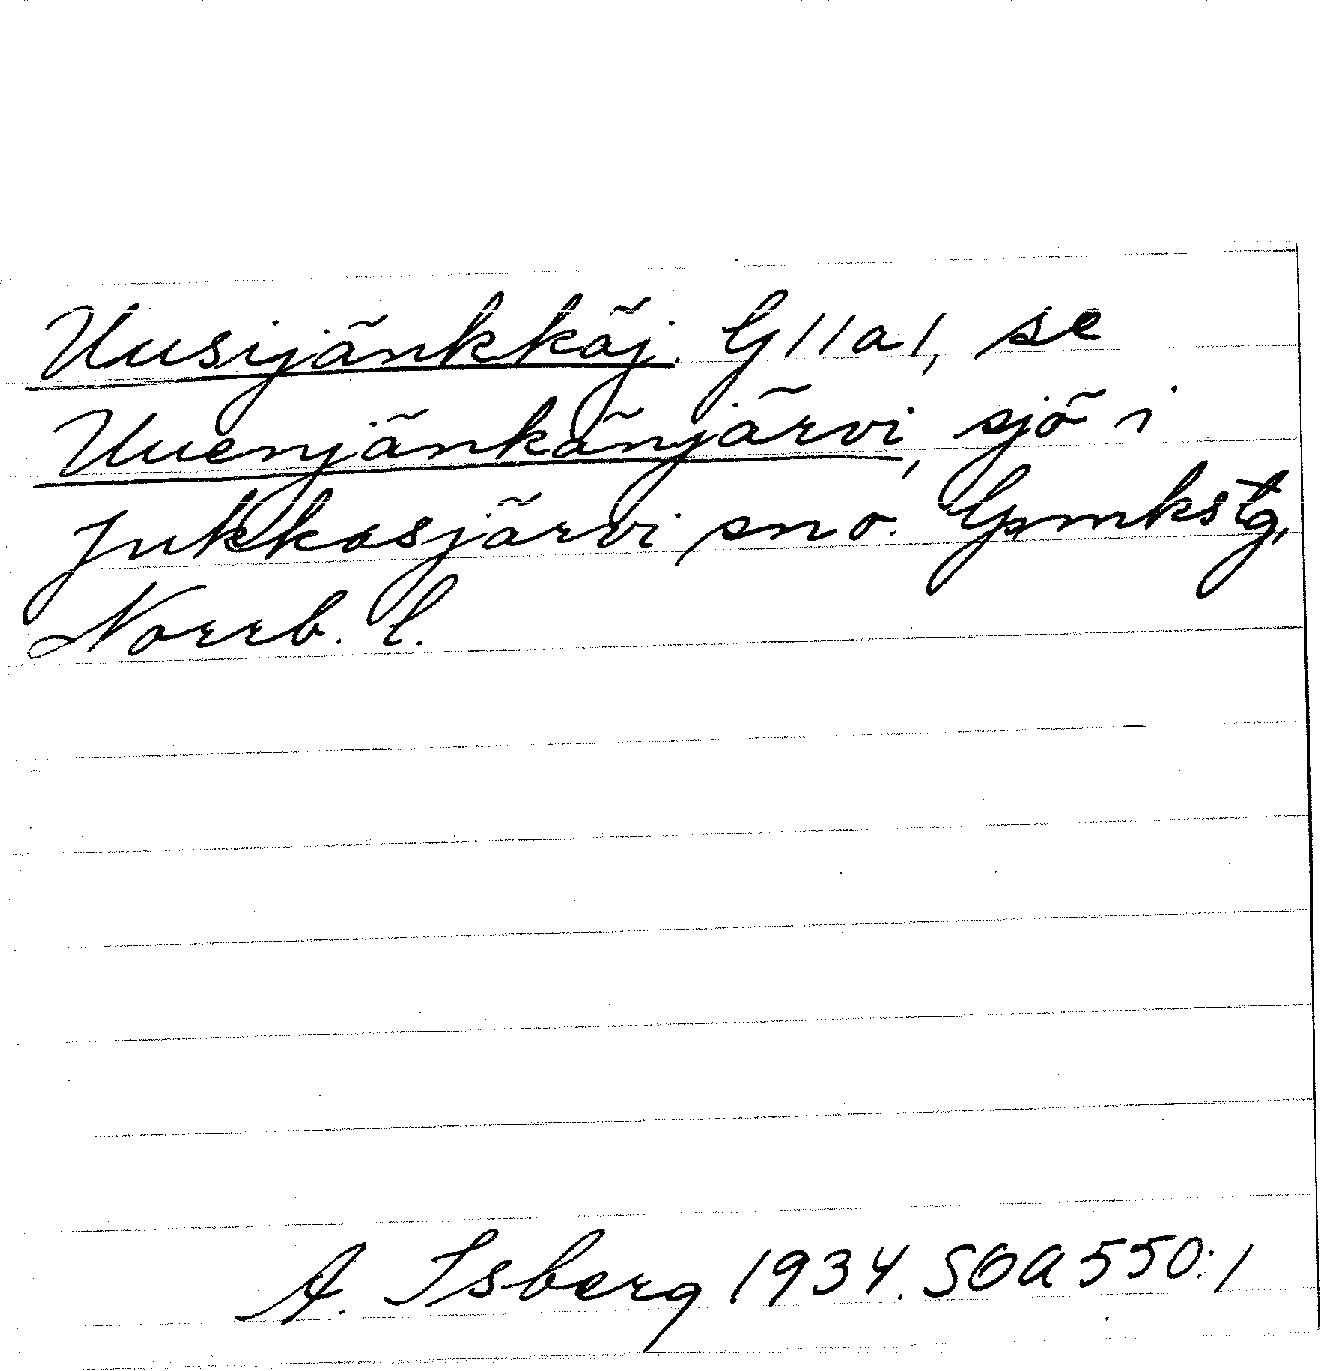 Uusijänkkäj. G11a1, se
Uuenjänkänjärvi, sjö i
Jukkasjärvi sno. Gpmkstg,
Norrb. l.
A. Isberg 1934. SOA 550:1